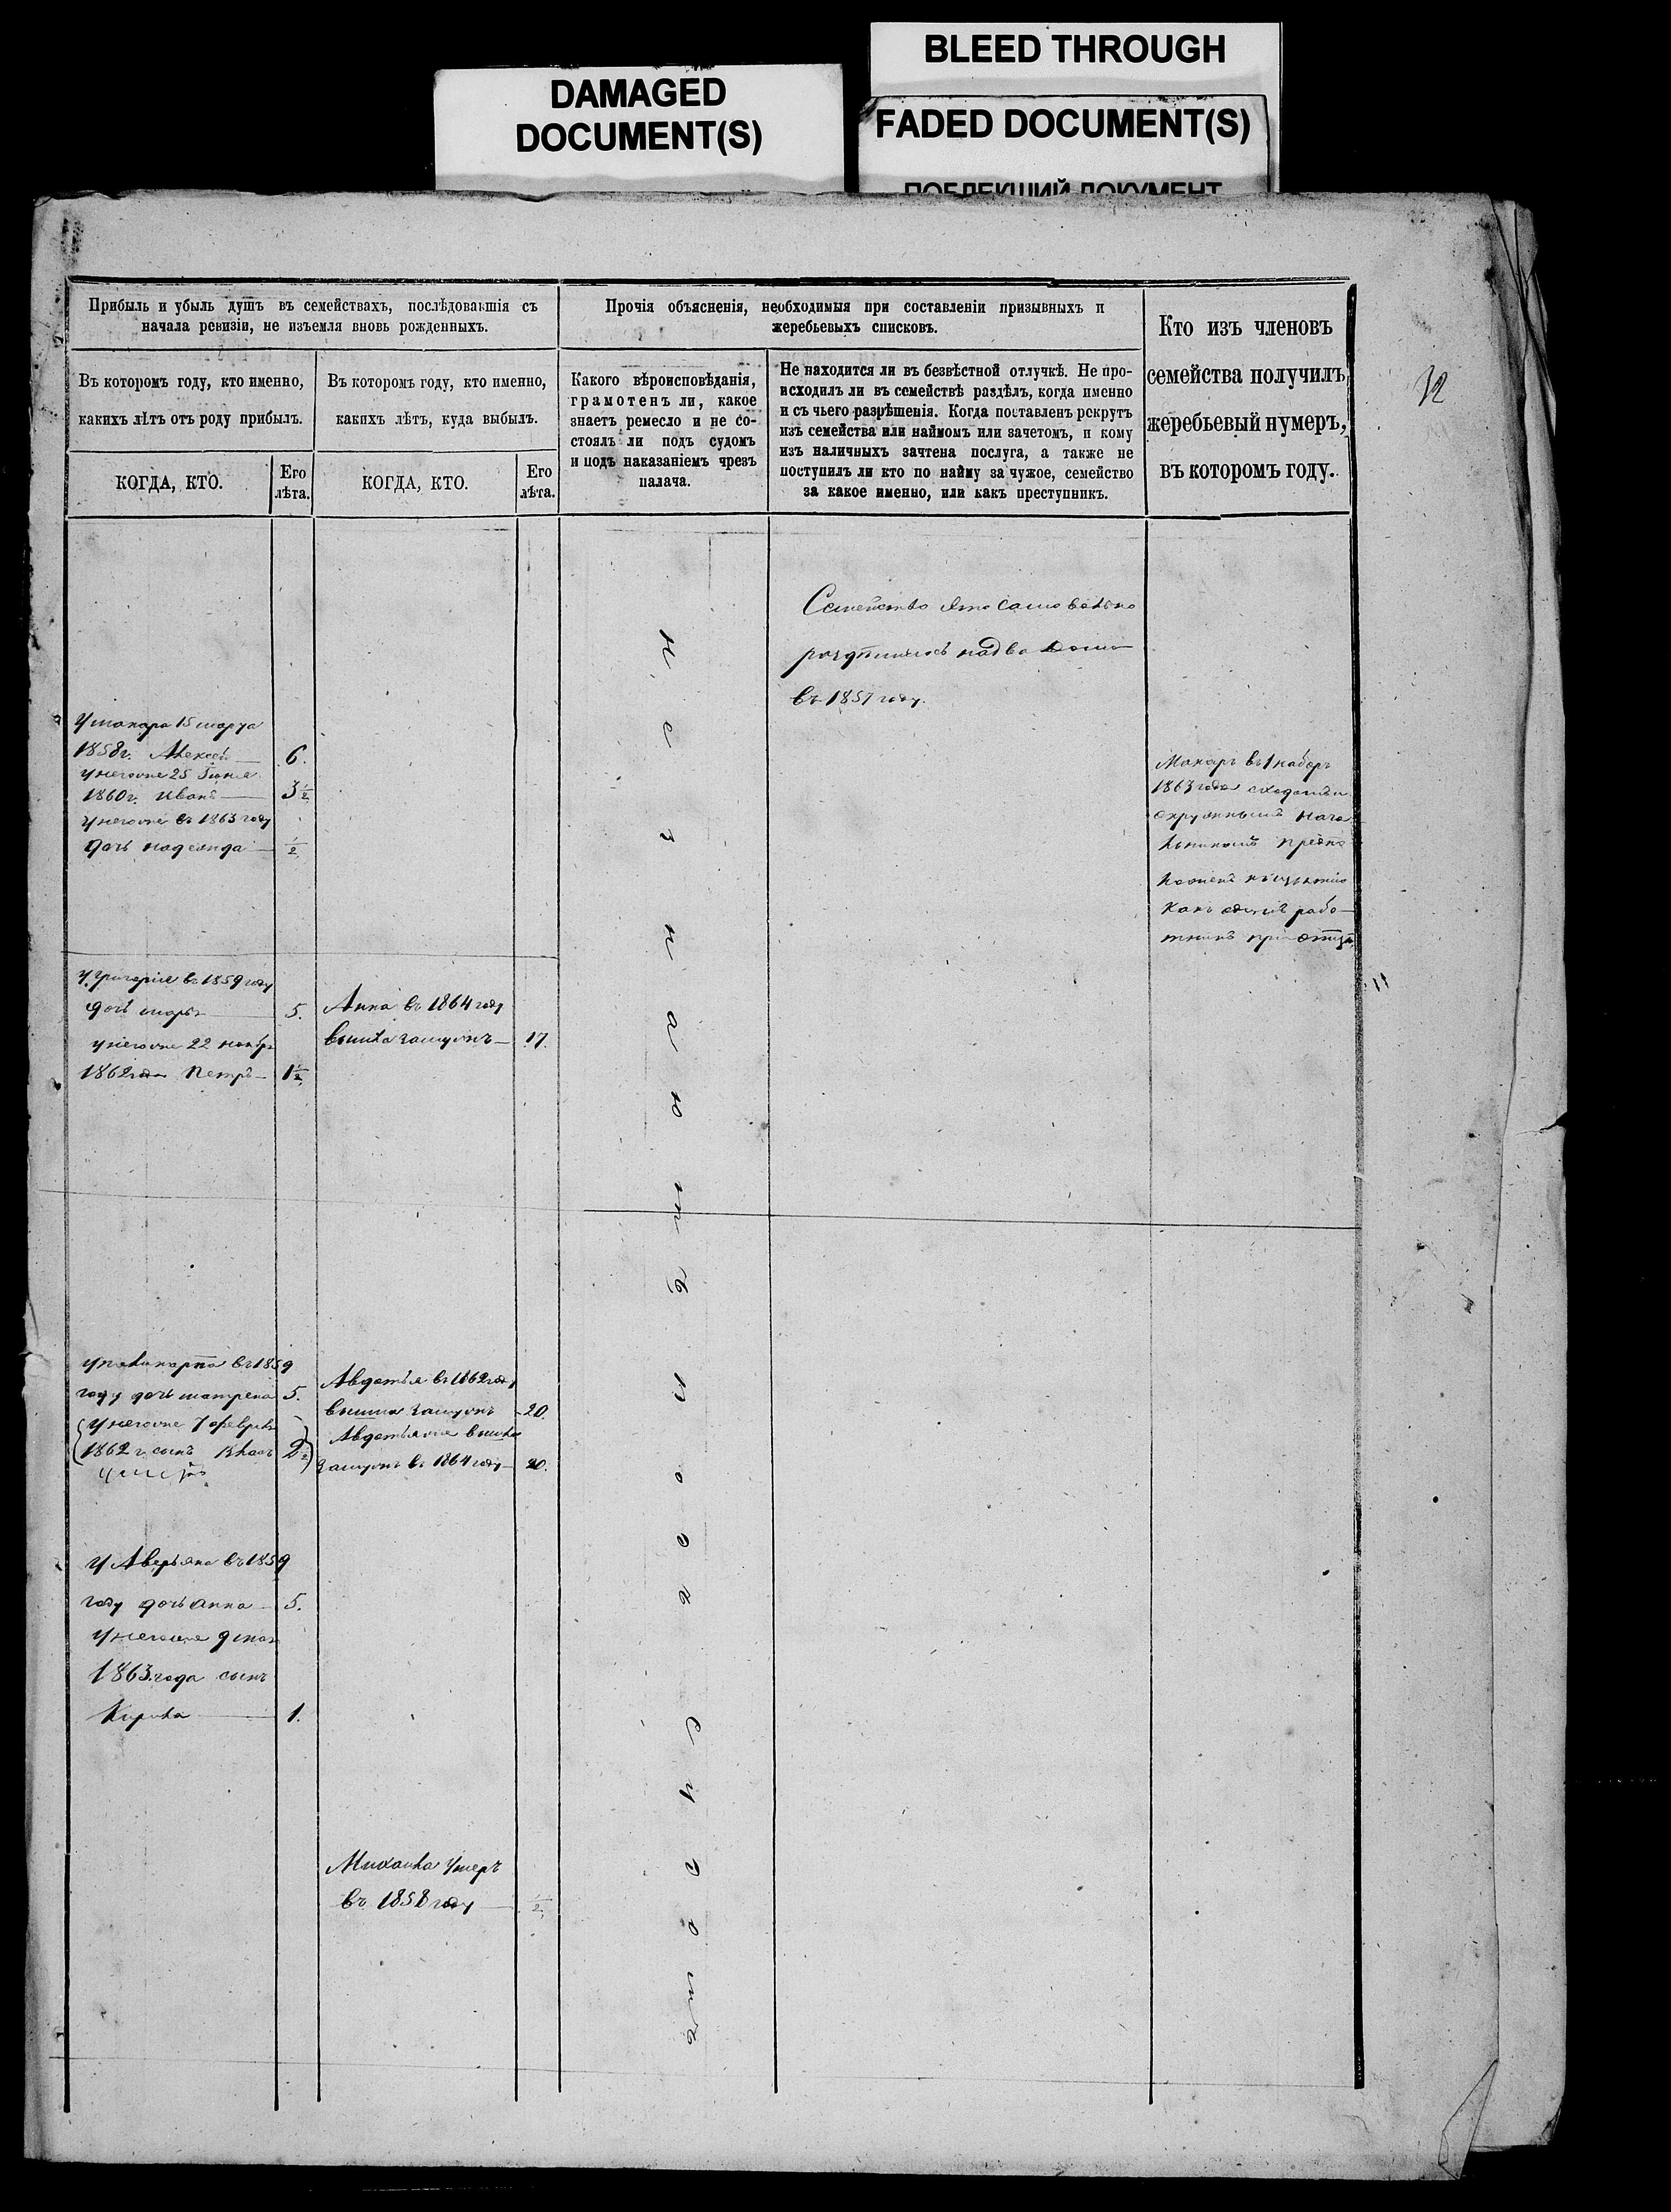 BLEED THROUGH
DAMAGED
DOCUMENT(S)
FADED DOCUMENT(S)
ПОБЛЕКШИЙ ДОКУМЕНТ
Прибыль и убыль душъ въ семействахъ, послѣдовавшія съ
начала ревизіи, не изъемля вновь рожденныхъ.
Прочія объясненія, необходимыя при составленіи призывныхъ и
жеребьевыхъ списковъ.
Кто изъ членовъ
семейства получилъ
жеребьевый нумеръ,
въ которомъ году.
Въ которомъ году, кто именно,
какихъ лѣтъ отъ роду прибылъ.
Въ которомъ году, кто именно,
какихъ лѣтъ, куда выбылъ.
Какого вѣроисповѣданія,
грамотенъ ли, какое
знаетъ ремесло и не со-
стоялъ ли подъ судомъ
и подъ наказаніемъ чрезъ
палача.
Не находится ли въ безвѣстной отлучкѣ. Не про-
исходилъ ли въ семействѣ раздѣлъ, когда именно
и съ чьего разрѣшенія. Когда поставленъ рекрутъ
изъ семейства или наймомъ или зачетомъ, и кому
изъ наличныхъ зачтена послуга, а также не
поступилъ ли кто по найму за чужое, семейство
за какое именно, или какъ преступникъ.
КОГДА, КТО.
Его
лѣта.
КОГДА, КТО.
Его
лѣта.
32
Семейство это самовольно
раздѣлилось на два дома
въ 1857 году.
У макара 15 марта
1858 г. Алексѣй — 6.
у негоже 25 Іюня
1860 г. Иванъ — 3½
у негоже въ 1863 году
дочь надежда — ½
Макаръ въ наборъ
1863 года
окружнымъ нача
льникомъ предпо
ложенъ къ изъятію
какъ одинъ рабо—
тникъ при отцѣ
у григорія въ 1859 году
дочь марья — 5.
у негоже 22 ноября
1862 года Петръ — 1½
Анна въ 1864 году
вышла замужъ — 17.
у поликарпа въ 1859
году дочь матрена 5.
у негоже 7 февраля
1862 г. сынъ Власъ 2
Авдотья въ 1862 году
вышла замужъ — 20.
Авдотья же вышла
замужъ въ 1864 году — 20.
У Аверьяна въ 1859
году дочь анна — 5.
у негоже 9 мая
1863 года сынъ
Кирила — 1.
Михаила умеръ
въ 1858 году — ½